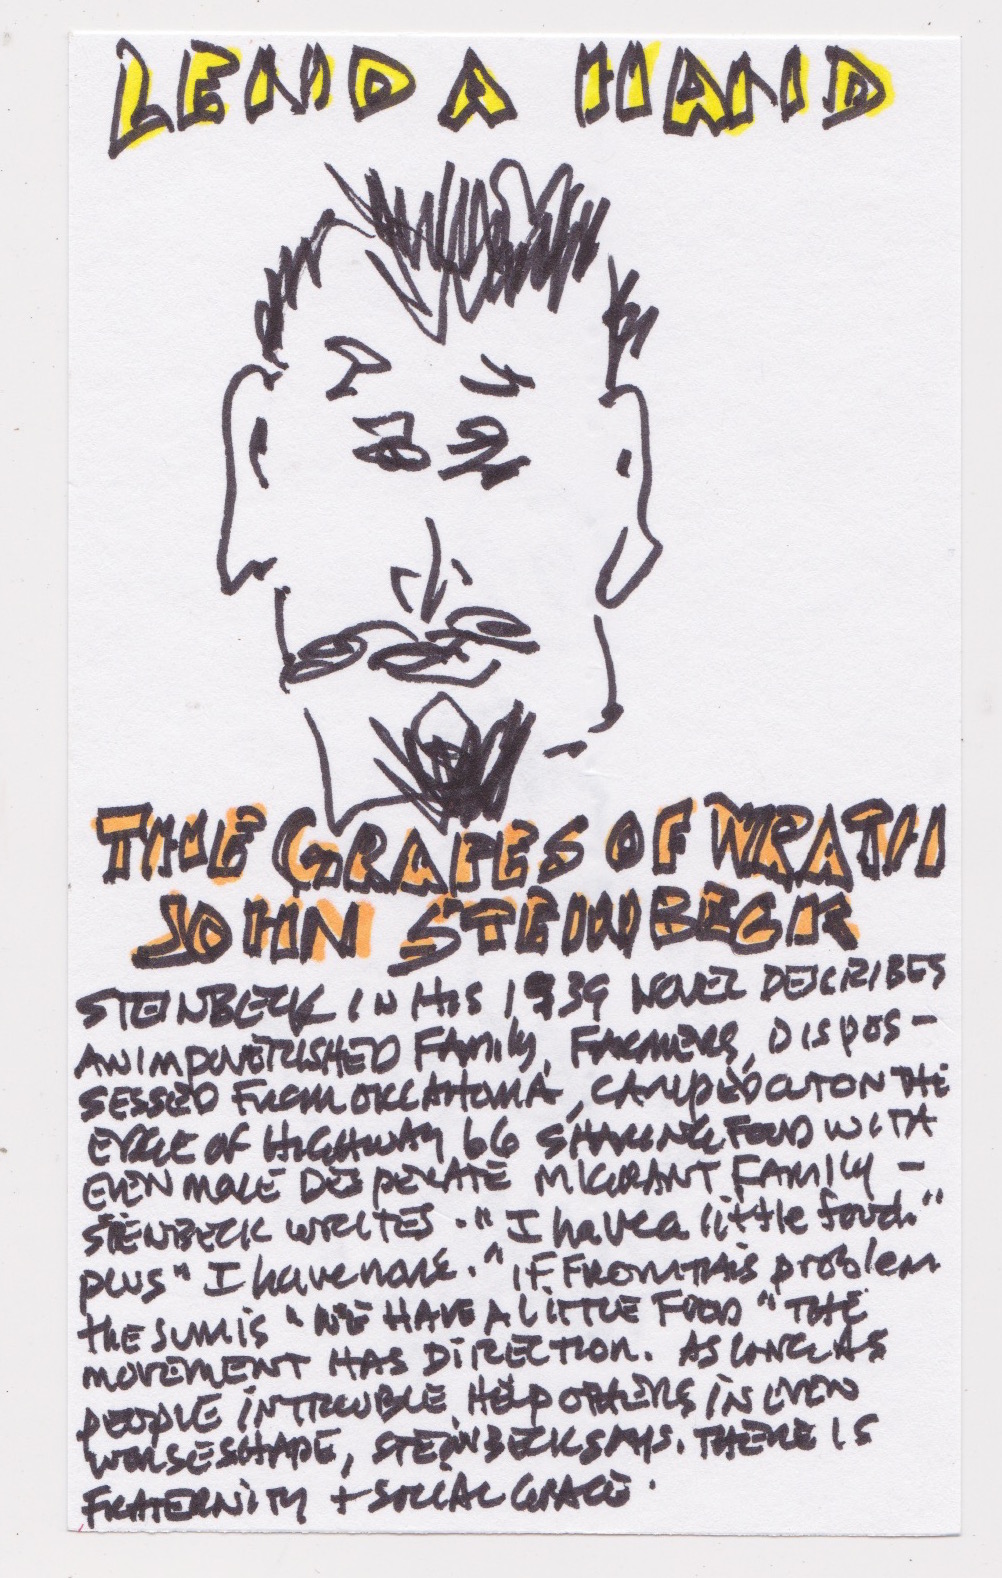 LEND A HAND
THE GRAPES OF WRATH
JOHN STEINBECK
STEINBECK IN HIS 1939 NOVEL DESCRIBES
AN IMPOVERISHED FAMILY, FARMERS, DISPOS-
SESSED FROM OKLAHOMA, CAMPED OUT ON THE
EDGE OF HIGHWAY 66 SHARING FOOD WITH
EVEN MORE DESPERATE MIGRANT FAMILY -
STEINBECK WRITES. "I have a little food."
plus "I have none." IF FROM THIS problem
the SUM IS "WE HAVE A LITTLE FOOD" THE
MOVEMENT HAS DIRECTION. AS LONG AS
PEOPLE IN TROUBLE HELP OTHERS IN EVEN
WORSE SHAPE, STEINBECK SAYS. THERE IS
FRATERNITY + SOCIAL GRACE.